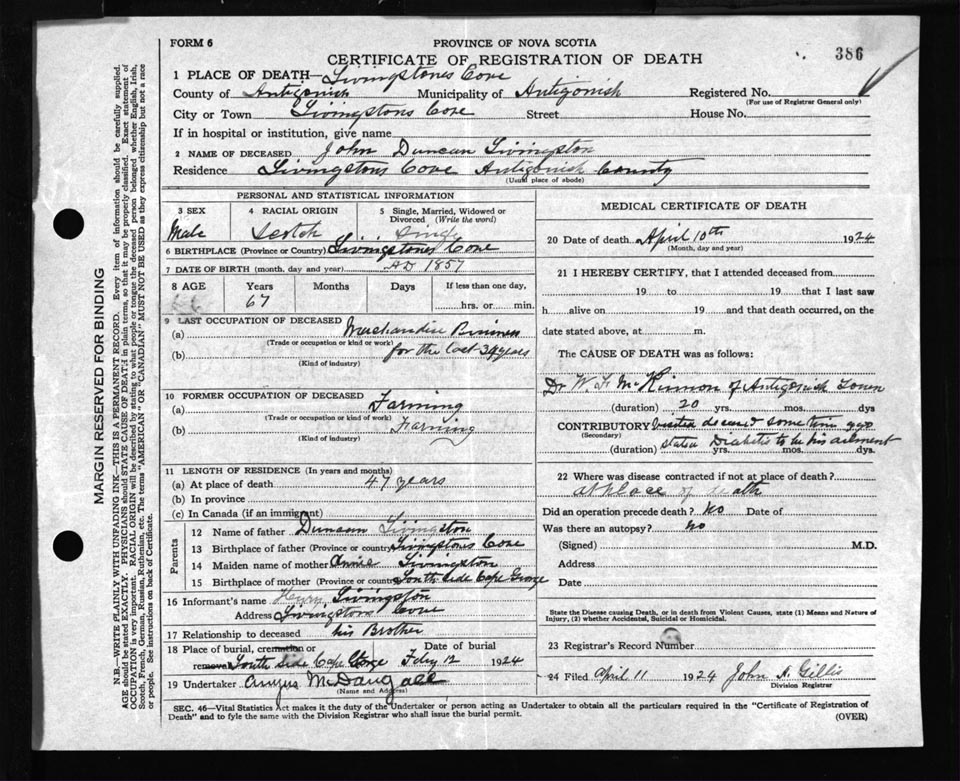 FORM 6
PROVINCE OF NOVA SCOTIA
386
CERTIFICATE OF REGISTRATION OF DEATH
1 PLACE OF DEATH—Livingstones Cove
County of Antigonish Municipality of Antigonish Registered No.
(For use of Registrar General only)
City or Town Livingstons Cove Street House No.
If in hospital or institution, give name
2 NAME OF DECEASED John Duncan Livingston
Residence Livingstons Cove Antigonish County
(Usual place of abode)
PERSONAL AND STATISTICAL INFORMATION
3 SEX 4 RACIAL ORIGIN 5 Single, Married, Widowed or
Divorced (Write the word)
Male Scotch Single
6 BIRTHPLACE (Province or Country) Livingstones Cove
7 DATE OF BIRTH (month, day and year) AD 1857
8 AGE Years Months Days If less than one day,
67 hrs. or min.
9 LAST OCCUPATION OF DECEASED
(a) Merchandise Business
(Trade or occupation or kind or work)
(b) for the last 39 years
(Kind of industry)
10 FORMER OCCUPATION OF DECEASED
(a) Farming
(Trade or occupation or kind of work)
(b) Farming
(Kind of industry)
11 LENGTH OF RESIDENCE (In years and months)
(a) At place of death 47 years
(b) In province
(c) In Canada (if an immigrant)
Parents
12 Name of father Duncan Livingston
13 Birthplace of father (Province or country) Livingstons Cove
14 Maiden name of mother Annie Livingston
15 Birthplace of mother (Province or country) South Side Cape George
16 Informant's name Henry Livingston
Address Livingstons Cove
17 Relationship to deceased his Brother
18 Place of burial, cremation or Date of burial
removal South Side Cape George 12 1924
19 Undertaker Angus McDougall
(Name and Address)
MEDICAL CERTIFICATE OF DEATH
20 Date of death April 10th 1924
(Month, day and year)
21 I HEREBY CERTIFY, that I attended deceased from
19 to 19 that I last saw
h alive on 19 and that death occurred, on the
date stated above, at m.
The CAUSE OF DEATH was as follows:
Dr W. F. McKinnon of Antigonish Town
(duration) 20 yrs. mos. dys
CONTRIBUTORY visited deceased sometime ago
(Secondary)
stated Diabetis to be his ailment
(duration) yrs. mos. dys.
22 Where was disease contracted if not at place of death?
at place of death
Did an operation precede death? No Date of
Was there an autopsy? No
(Signed) M.D.
Address
Date
State the Disease causing Death, or in death from Violent Causes, state (1) Means and Nature of
Injury, (2) whether Accidental, Suicidal or Homicidal.
23 Registrar's Record Number
24 Filed April 11 1924 John A. Gillis
Division Registrar
SEC. 46—Vital Statistics Act makes it the duty of the Undertaker or person acting as Undertaker to obtain all the particulars required in the "Certificate of Registration of
Death" and to fyle the same with the Division Registrar who shall issue the burial permit.
(OVER)
MARGIN RESERVED FOR BINDING
N.B.—WRITE PLAINLY WITH UNFADING INK—THIS IS A PERMANENT RECORD. Every item of information should be carefully supplied.
AGE should be stated EXACTLY. PHYSICIANS should STATE CAUSE OF DEATH in plain terms, so that it may be properly classified. Exact statement of
OCCUPATION is very important. RACIAL ORIGIN will be described by stating to what people or tongue the deceased person belonged whether English, Irish,
Scotch, French, German, Russian, Ruthenian, etc. The terms "AMERICAN" OR "CANADIAN" MUST NOT BE USED as they express citizenship but not a race
or people. See instructions on back of Certificate.